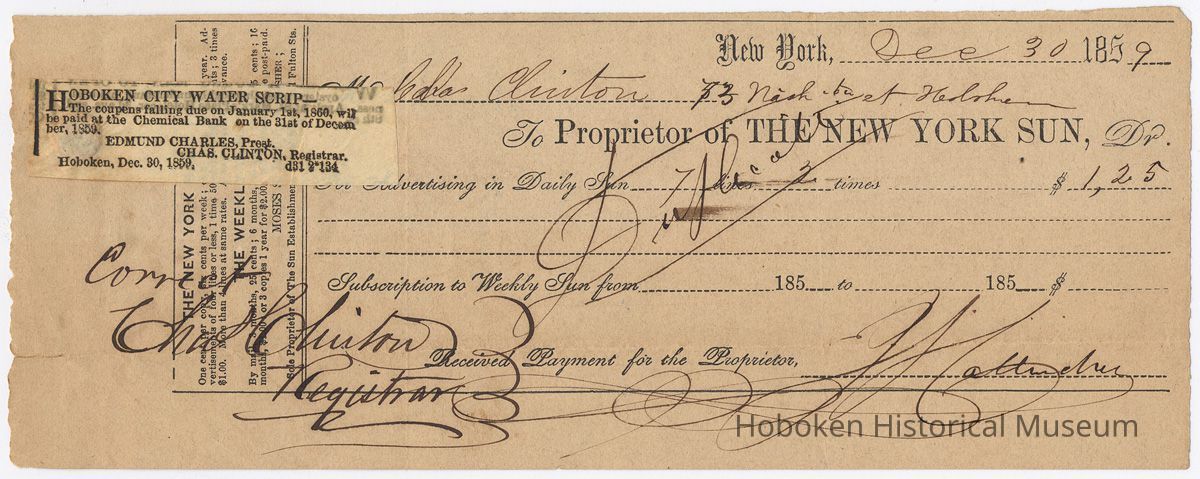 New York, Dec 30 1859
Mr Chas Clinton 73 Nash at Hoboken
To Proprietor of THE NEW YORK SUN, Dr.
For Advertising in Daily Sun 7 lines 2 times $ 1,25
Subscription to Weekly Sun from 185 to 185 $
Received Payment for the Proprietor,
HOBOKEN CITY WATER SCRIP—
The coupens falling due on January 1st, 1860, will
be paid at the Chemical Bank on the 31st of Decem
ber, 1859.
EDMUND CHARLES, Prest.
CHAS. CLINTON, Registrar.
Hoboken, Dec. 30, 1859. d31 2*134
THE NEW YORK
One cent per copy, six cents per week;
year. Ad-
vertisements of four lines or less, 1 time 50
ts; 3 times
$1.00. More than 4 lines at same rates.
vance.
THE WEEKL
By mail, 3 months, 25 cents; 6 months,
cents; 16
months, or 3 copies 1 year for $2.00
e post-paid.
MOSES S
SHER;
Sole Proprietor of The Sun Establishment
Fulton Sts.
Correct
Chas Clinton
Registrar
Hoboken Historical Museum